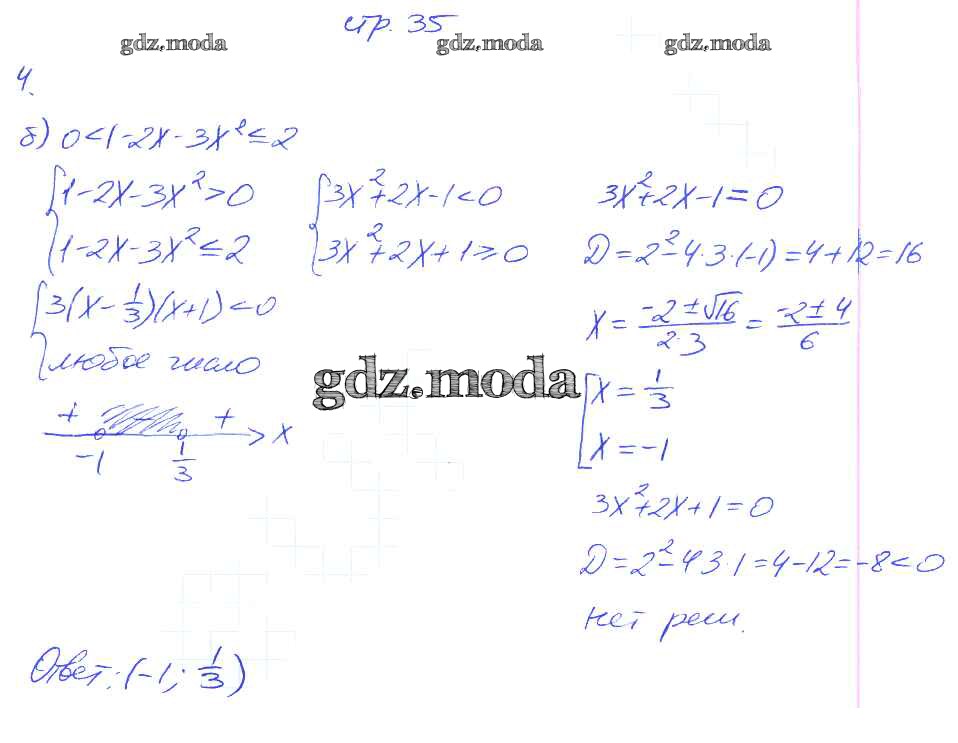 стр. 35
gdz.moda gdz.moda gdz.moda
4.
б) 0<1-2x-3x²≤2
{1-2x-3x²>0
{1-2x-3x²≤2
{3(x-1/3)(x+1)<0
{любое число
+ - + x
-1 1/3
{3x²+2x-1<0
{3x²+2x+1≥0
gdz.moda
3x²+2x-1=0
D=2²-4·3·(-1)=4+12=16
x=(-2±√16)/(2·3)=(-2±4)/6
[x=1/3
[x=-1
3x²+2x+1=0
D=2²-4·3·1=4-12=-8<0
нет реш.
Ответ: (-1; 1/3)